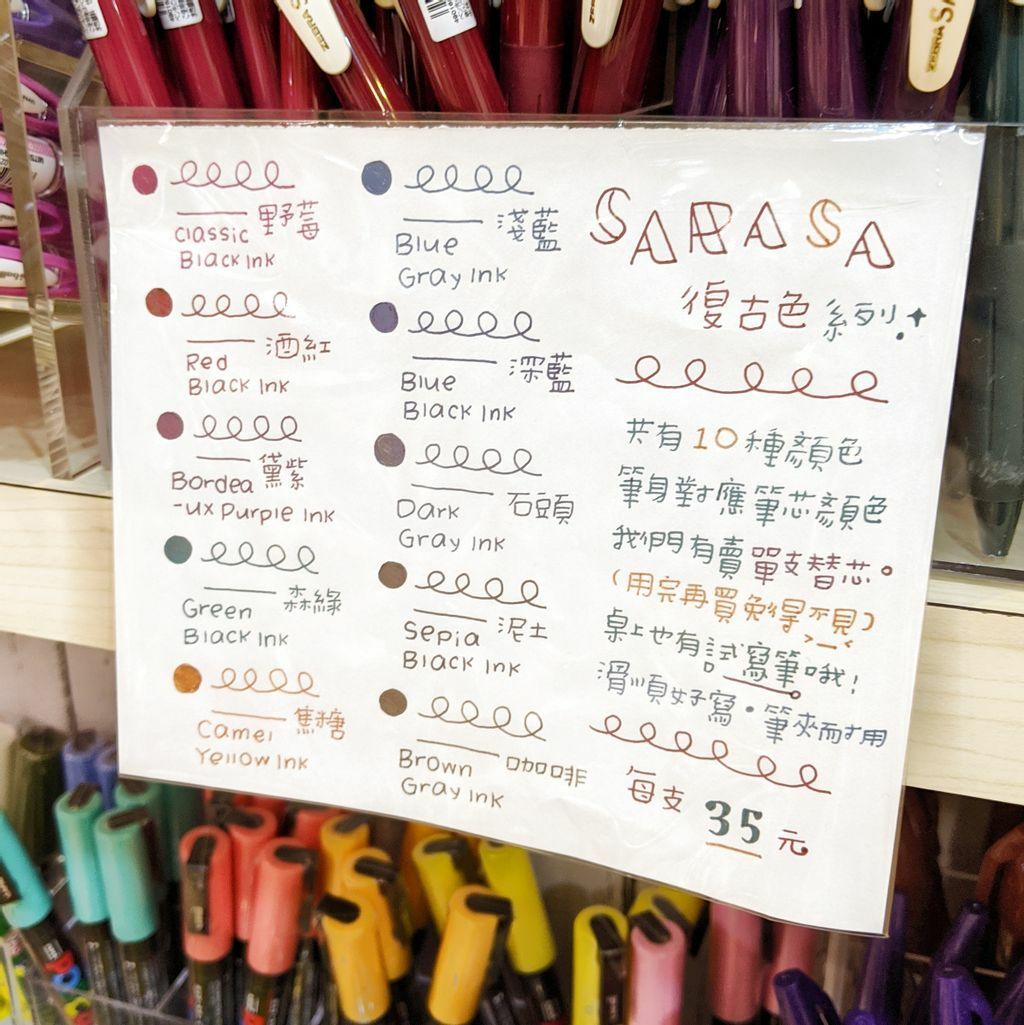 ZEBRA
ZEBRA
野莓
Classic
Black Ink
酒紅
Red
Black Ink
黛紫
Bordea
-ux Purple Ink
森綠
Green
Black Ink
焦糖
Camel
Yellow Ink
淺藍
Blue
Gray Ink
深藍
Blue
Black Ink
石頭
Dark
Gray Ink
泥土
Sepia
Black Ink
咖啡
Brown
Gray Ink
SARASA
復古色系列
共有10種顏色
筆身對應筆芯顏色
我們有賣單支替芯。
(用完再買免得不見)
>_<
桌上也有試寫筆哦!
滑順好寫·筆夾耐用
每支 35 元